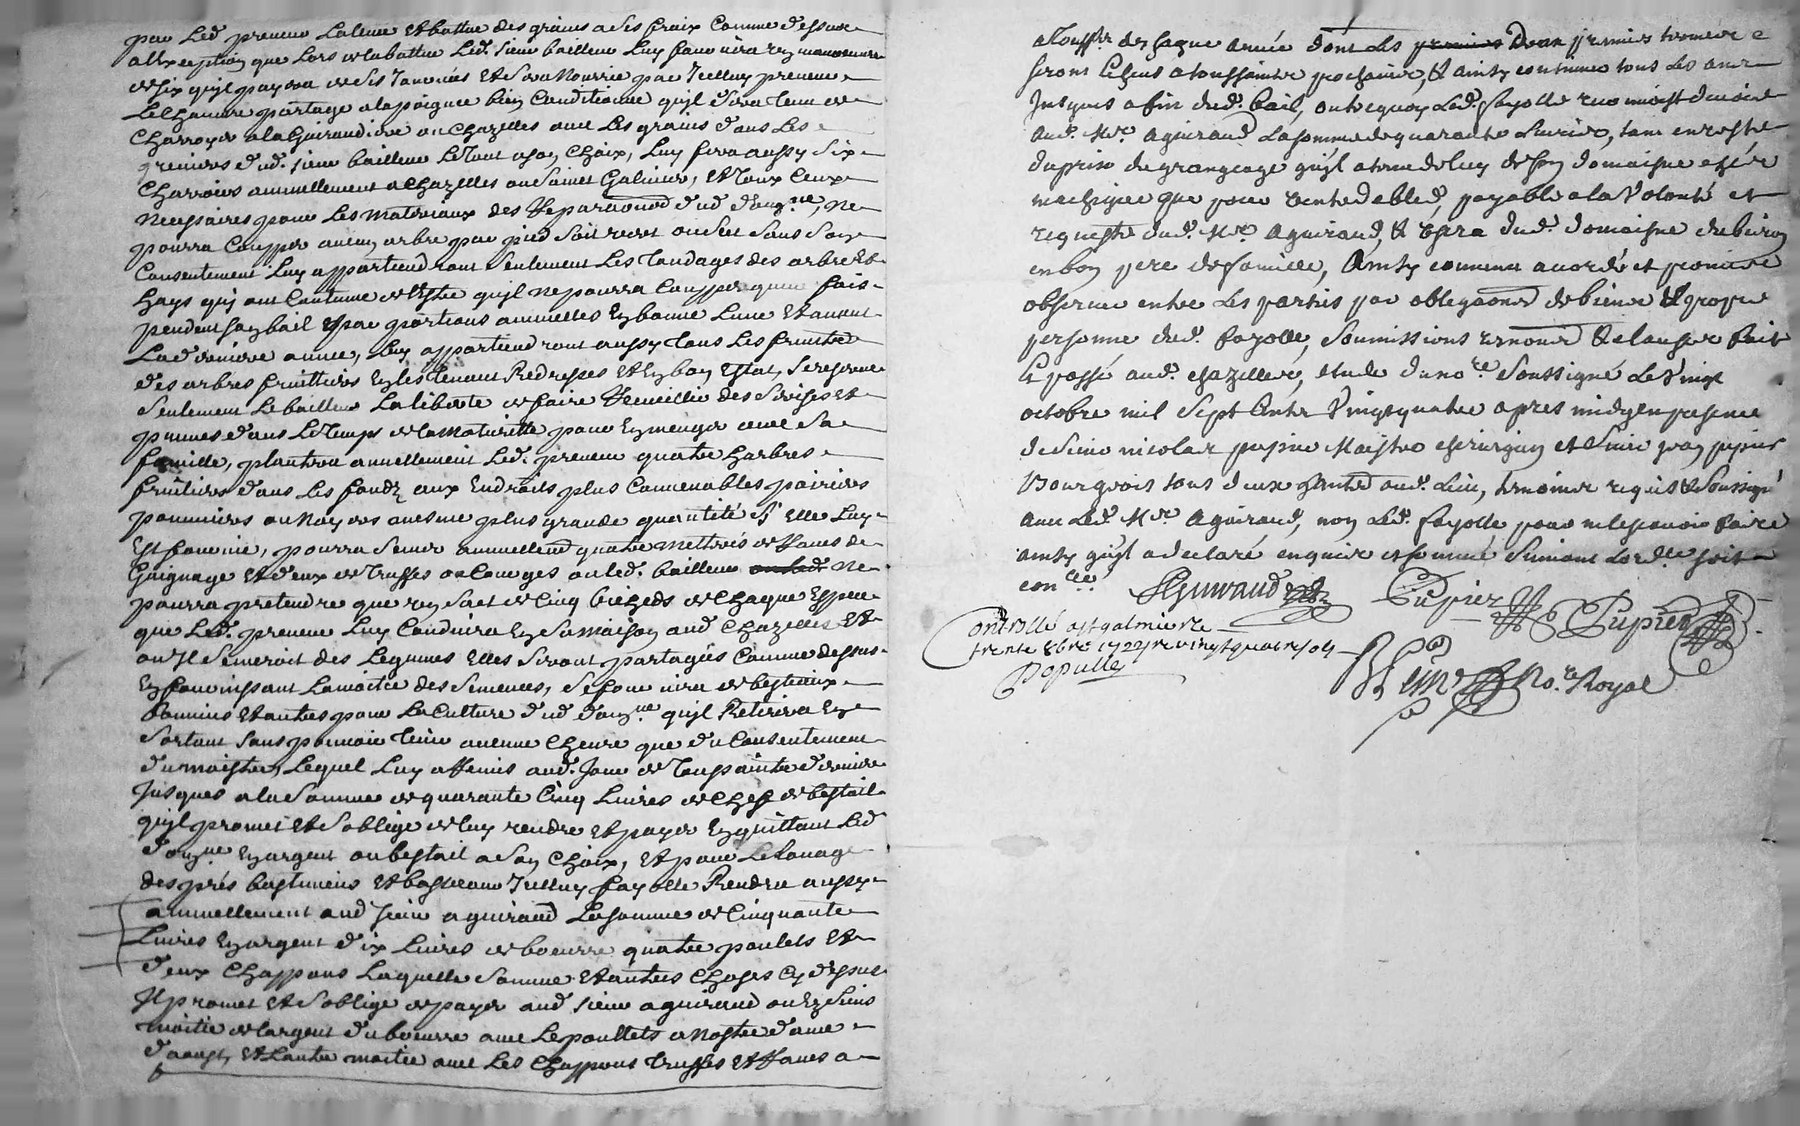 par Led preneur La leue Et battue des grains a ses fraix Comme dessus
a lException que Lors de la battue Led. Sieur bailleur Luy fournira
de six quil payera de ses Et sera Nourrie par Icelluy preneur
Le Chanvre partage a la poignee bien Conditionné quil sera tenu de
Charroyer a la Guiraudiere ou Chazelles avec Les grains dans Les
greniers dud. sieur bailleur Le tout a son Choix, Luy fera aussy six
Charrois annuellement a Chazelles ou Saint Galmier, Et tous Ceux
Necessaires pour Les Materiaux des Reparaõns dud domne, Ne
pourra Coupper aucun arbre par pied soit vert ou sec sans son
Consentement Luy appartiendront seulement Les tondages des arbres Et
hays quy ont Coutume de lEstre quil ne pourra Coupper quune fois
pendent son bail Et par portions annuelles En bonne Lune Et avant
La derniere annee, Luy appartiendront aussy tous Les fruits
des arbres fruittiers En les tenant Redressés Et En bon Estat, se reserve
seulement Le bailleur La liberte de faire Recueillir des serises Et
prunes dans Le temps de la maturitte pour En manger avec sa
famille, plantera annuellement Led. preneur quatre harbres
fruitiers dans Les fondz aux Endroits plus Convenables poiriers
pommiers ou Noyers mesme plus grande quantité sy Elle Luy
Est fournie, pourra semer annuellemt quatre mettrés de Raves de
Gaignage Et deux de truffes ou Courges ou led. bailleur ne
pourra pretendre que six sacs de Cinq bichets de Chaque Espece
que Led. preneur Luy Conduira En sa maison aud Chazelles Et
ou Il semeroit des Legumes Elles seront partagées Comme dessus
En fournissant La moitié des semences, se fournira de bestiaux
Et autres pour La Culture dud domne quil Retirera En
sortant sans pouvoir tenir aucune Chevre que du Consentement
du maistre, Lequel Luy a Remis aud. Jour de toussaints derniere
Jusques a la somme de quarante Cinq Livres de Chept de bestail
quil promet Et soblige de luy rendre Et payer En quittant Led
domne En argent ou bestail a son Choix, Et pour Le Louage
des prés bastimens Et Icelluy fayolle Rendra aussy
annuellement aud sieur aguiraud La somme de Cinquante
Livres En argent dix Livres de beurre quatre poulets Et
deux Chappons Laquelle somme Et autres Choses Cy dessus
Il promet Et soblige de payer aud sieur aguiraud ou Es siens
moitié de largent du beurre avec Les poullets a Nostre dame
daoust, Et Lautre moitié avec Les Chappons truffes Et Raves a
a toussts. de chaque année dont Les premier
seront Echeus a toussaints prochain, & ainsy continuer tous Les ans
Jusques a fin dud. bail, outre quoy Led. fayolle reconnoist devoir
aud. Mr. aguiraud La somme de quarante Livres, tant en reste
du prix de grangeage quil a tenu de luy de son domaine
que pour vente de bled, payable a la Volonté et
requeste dud. Mr. Aguiraud, & usera dud. domaine
en bon pere de famille, Ainsy convenu accordé et promis
observer entre Les parties par obligaõns de biens & propre
personne dud. fayolle, soumissions renonõns & clauses fait
& passé aud. chazelles, etude du nore. soussigné Le vingt
octobre mil sept Cents Vingt quatre apres midy en presence
de sieur nicolas pupier Maistre chirurgien et sieur jean pupier
Bourgeois tous deux habitans aud. Lieu, temoins requis & soussignés
avec Led. Mr. Aguiraud, non Led. fayolle pour ne scavoir faire
ainsy quil a declaré enquis et sommé suivant Lordce soit
conlée.
AGuiraud
Pupier
Pupier
Controllé a st galmier le
trente 8bre 1724
Populle
No.re Royal